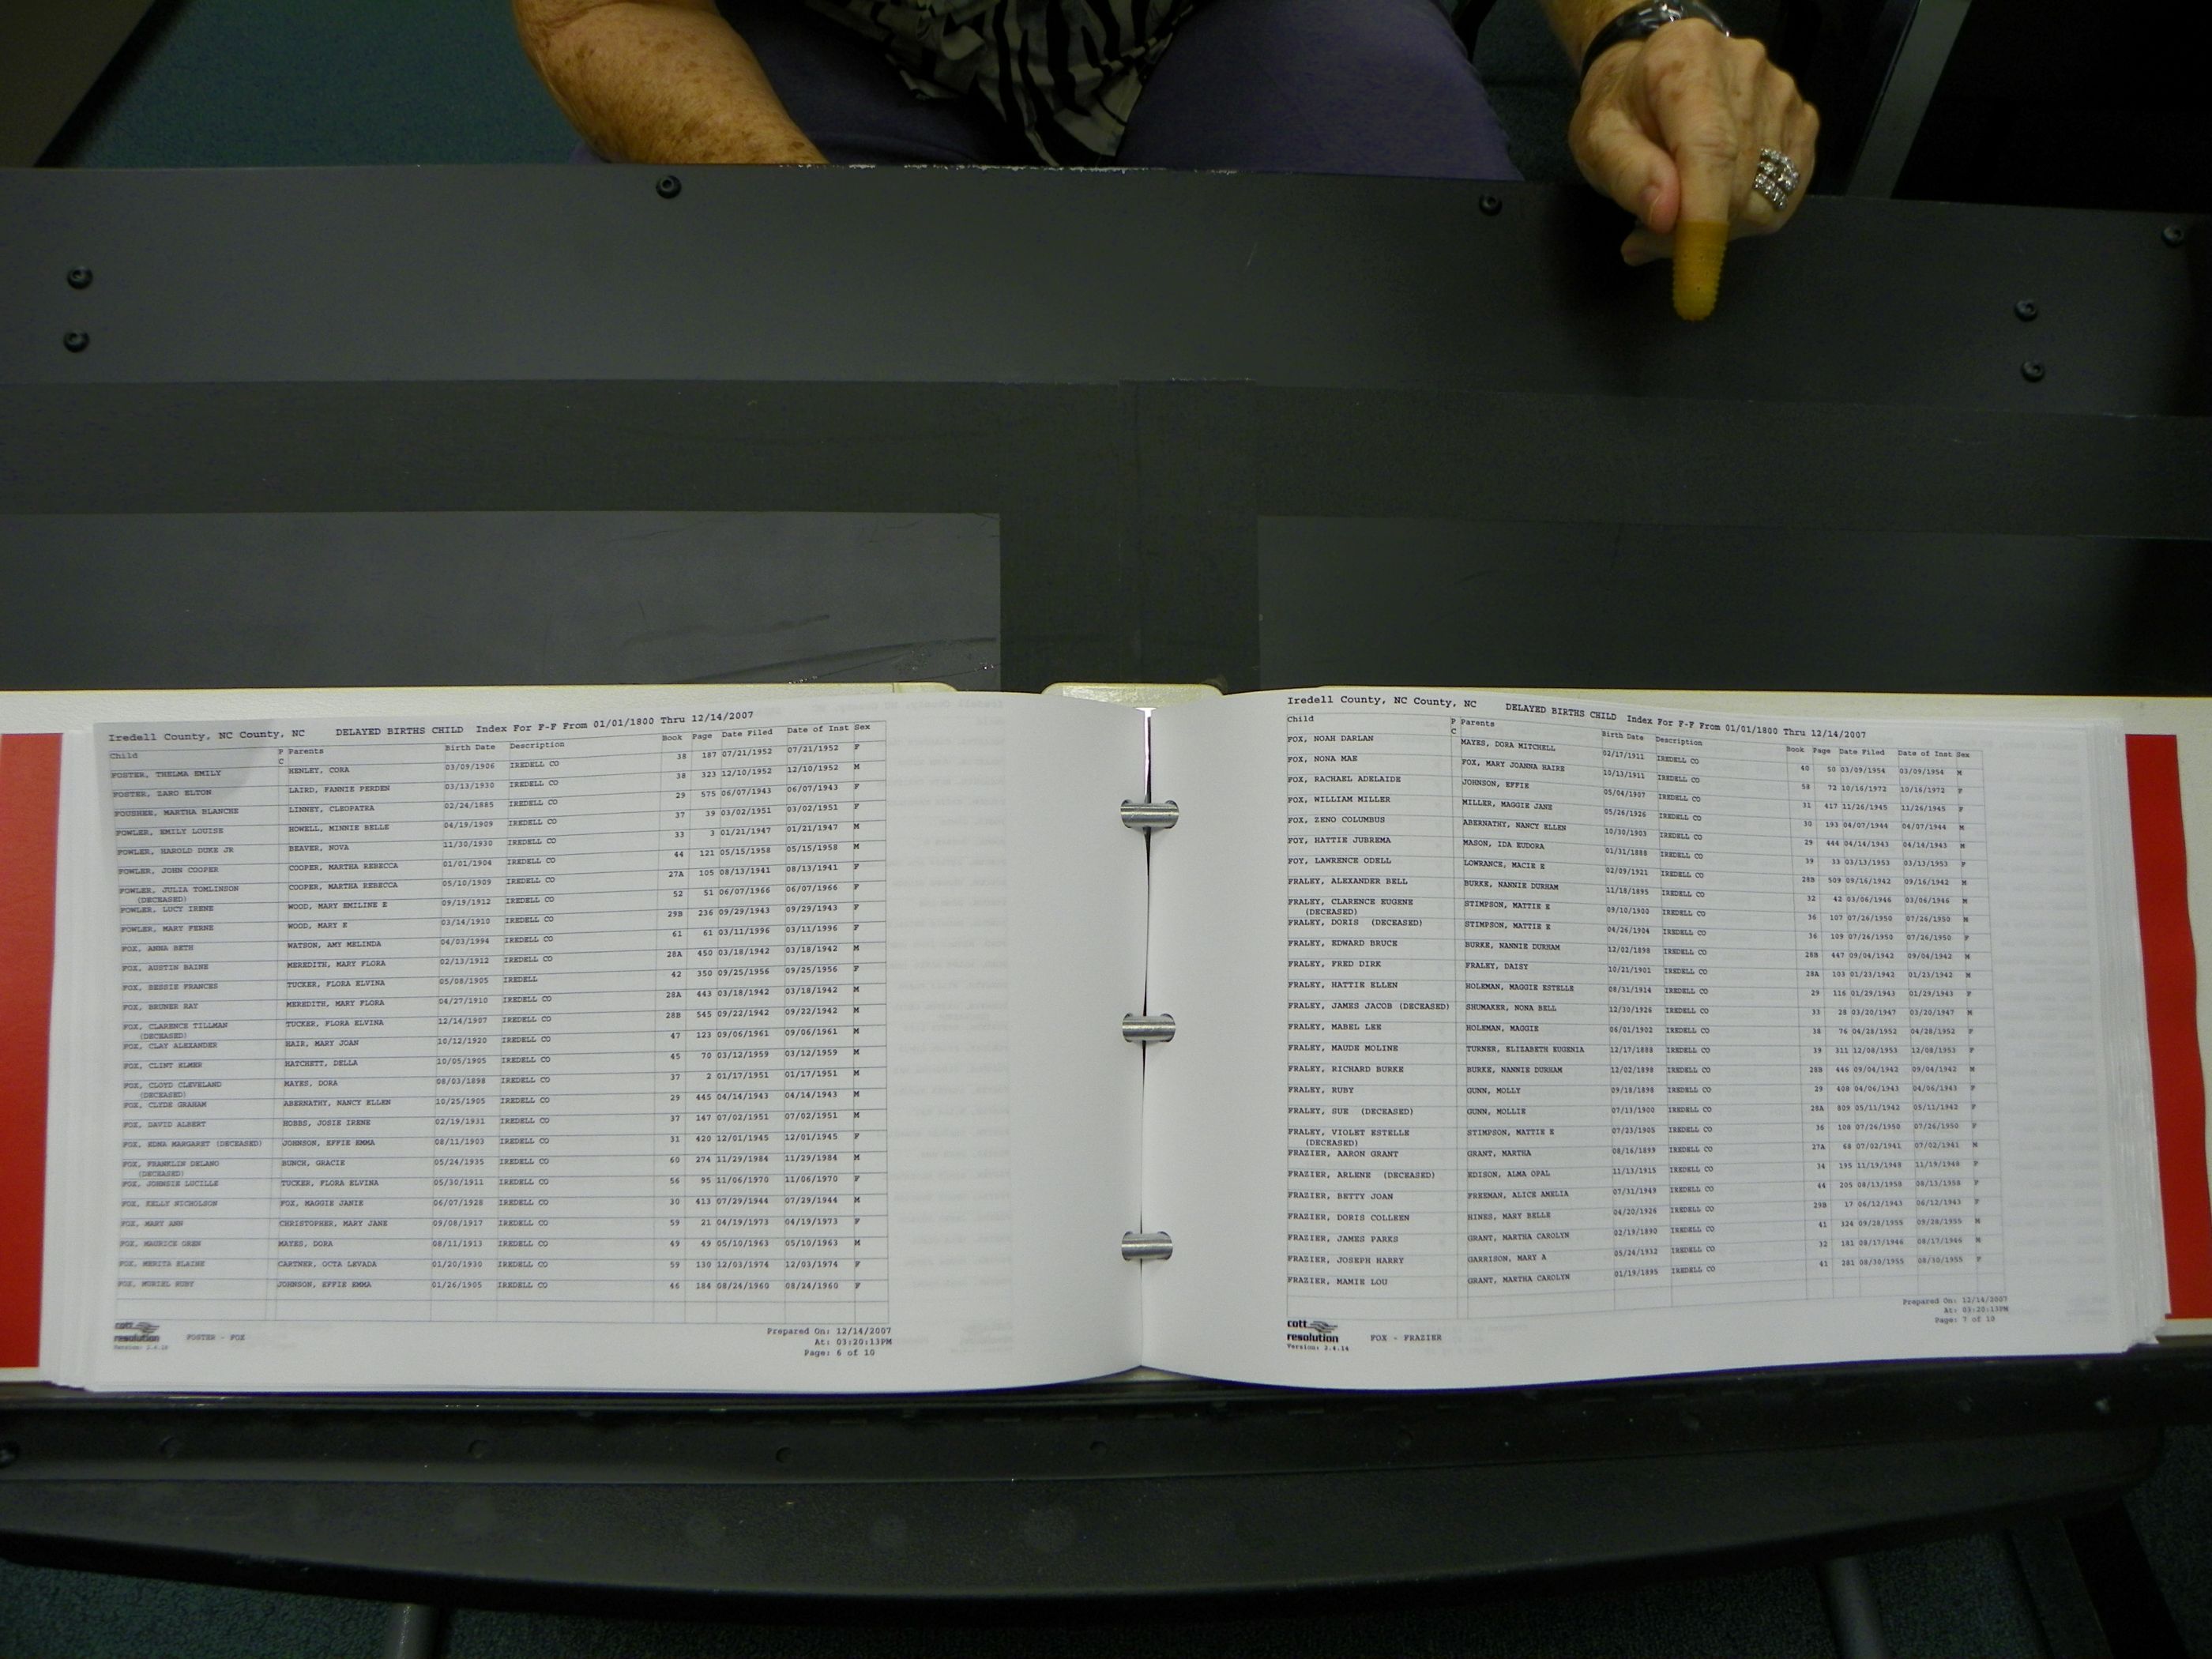 Iredell County, NC County, NC DELAYED BIRTHS CHILD Index For F-F From 01/01/1800 Thru 12/14/2007
Child P C Parents Birth Date Description Book Page Date Filed Date of Inst Sex
FOSTER, THELMA EMILY HENLEY, CORA 03/09/1906 IREDELL CO 38 187 07/21/1952 07/21/1952 F
FOSTER, ZARO ELTON LAIRD, FANNIE PERDEN 03/13/1930 IREDELL CO 38 323 12/10/1952 12/10/1952 M
FOUSHEE, MARTHA BLANCHE LINNEY, CLEOPATRA 02/24/1885 IREDELL CO 29 575 06/07/1943 06/07/1943 F
FOWLER, EMILY LOUISE HOWELL, MINNIE BELLE 04/19/1909 IREDELL CO 37 39 03/02/1951 03/02/1951 F
FOWLER, HAROLD DUKE JR BEAVER, NOVA 11/30/1930 IREDELL CO 33 3 01/21/1947 01/21/1947 M
FOWLER, JOHN COOPER COOPER, MARTHA REBECCA 01/01/1904 IREDELL CO 44 121 05/15/1958 05/15/1958 M
FOWLER, JULIA TOMLINSON COOPER, MARTHA REBECCA 05/10/1909 IREDELL CO 27A 105 08/13/1941 08/13/1941 F
(DECEASED)
FOWLER, LUCY IRENE WOOD, MARY EMILINE E 09/19/1912 IREDELL CO 52 51 06/07/1966 06/07/1966 F
FOWLER, MARY FERNE WOOD, MARY E 03/14/1910 IREDELL CO 29B 236 09/29/1943 09/29/1943 F
FOX, ANNA BETH WATSON, AMY MELINDA 04/03/1994 IREDELL CO 61 61 03/11/1996 03/11/1996 F
FOX, AUSTIN BAINE MEREDITH, MARY FLORA 02/13/1912 IREDELL CO 28A 450 03/18/1942 03/18/1942 M
FOX, BESSIE FRANCES TUCKER, FLORA ELVINA 05/08/1905 IREDELL 42 350 09/25/1956 09/25/1956 F
FOX, BRUNER RAY MEREDITH, MARY FLORA 04/27/1910 IREDELL CO 28A 443 03/18/1942 03/18/1942 M
FOX, CLARENCE TILLMAN TUCKER, FLORA ELVINA 12/14/1907 IREDELL CO 28B 545 09/22/1942 09/22/1942 M
(DECEASED)
FOX, CLAY ALEXANDER HAIR, MARY JOAN 10/12/1920 IREDELL CO 47 123 09/06/1961 09/06/1961 M
FOX, CLINT ELMER HATCHETT, DELLA 10/05/1905 IREDELL CO 45 70 03/12/1959 03/12/1959 M
FOX, CLOYD CLEVELAND MAYES, DORA 08/03/1898 IREDELL CO 37 2 01/17/1951 01/17/1951 M
(DECEASED)
FOX, CLYDE GRAHAM ABERNATHY, NANCY ELLEN 10/25/1905 IREDELL CO 29 445 04/14/1943 04/14/1943 M
FOX, DAVID ALBERT HOBBS, JOSIE IRENE 02/19/1931 IREDELL CO 37 147 07/02/1951 07/02/1951 M
FOX, EDNA MARGARET (DECEASED) JOHNSON, EFFIE EMMA 08/11/1903 IREDELL CO 31 420 12/01/1945 12/01/1945 F
FOX, FRANKLIN DELANO BUNCH, GRACIE 05/24/1935 IREDELL CO 60 274 11/29/1984 11/29/1984 M
(DECEASED)
FOX, JOHNSIE LUCILLE TUCKER, FLORA ELVINA 05/30/1911 IREDELL CO 56 95 11/06/1970 11/06/1970 F
FOX, KELLY NICHOLSON FOX, MAGGIE JANIE 06/07/1928 IREDELL CO 30 413 07/29/1944 07/29/1944 M
FOX, MARY ANN CHRISTOPHER, MARY JANE 09/08/1917 IREDELL CO 59 21 04/19/1973 04/19/1973 F
FOX, MAURICE OREN MAYES, DORA 08/11/1913 IREDELL CO 49 49 05/10/1963 05/10/1963 M
FOX, MERITA ELAINE CARTNER, OCTA LEVADA 01/20/1930 IREDELL CO 59 130 12/03/1974 12/03/1974 F
FOX, MURIEL RUBY JOHNSON, EFFIE EMMA 01/26/1905 IREDELL CO 46 184 08/24/1960 08/24/1960 F
cott
resolution FOSTER - FOX
Version: 2.4.14
Prepared On: 12/14/2007
At: 03:20:13PM
Page: 6 of 10
Iredell County, NC County, NC DELAYED BIRTHS CHILD Index For F-F From 01/01/1800 Thru 12/14/2007
Child P C Parents Birth Date Description Book Page Date Filed Date of Inst Sex
FOX, NOAH DARLAN MAYES, DORA MITCHELL 02/17/1911 IREDELL CO 40 50 03/09/1954 03/09/1954 M
FOX, NONA MAE FOX, MARY JOANNA HAIRE 10/13/1911 IREDELL CO 58 72 10/16/1972 10/16/1972 F
FOX, RACHAEL ADELAIDE JOHNSON, EFFIE 05/04/1907 IREDELL CO 31 417 11/26/1945 11/26/1945 F
FOX, WILLIAM MILLER MILLER, MAGGIE JANE 05/26/1926 IREDELL CO 30 193 04/07/1944 04/07/1944 M
FOX, ZENO COLUMBUS ABERNATHY, NANCY ELLEN 10/30/1903 IREDELL CO 29 444 04/14/1943 04/14/1943 M
FOY, HATTIE JUBREMA MASON, IDA EUDORA 01/31/1888 IREDELL CO 39 33 03/13/1953 03/13/1953 F
FOY, LAWRENCE ODELL LOWRANCE, MACIE E 02/09/1921 IREDELL CO 28B 509 09/16/1942 09/16/1942 M
FRALEY, ALEXANDER BELL BURKE, NANNIE DURHAM 11/18/1895 IREDELL CO 32 42 03/06/1946 03/06/1946 M
FRALEY, CLARENCE EUGENE STIMPSON, MATTIE E 09/10/1900 IREDELL CO 36 107 07/26/1950 07/26/1950 M
(DECEASED)
FRALEY, DORIS (DECEASED) STIMPSON, MATTIE E 04/26/1904 IREDELL CO 36 109 07/26/1950 07/26/1950 F
FRALEY, EDWARD BRUCE BURKE, NANNIE DURHAM 12/02/1898 IREDELL CO 28B 447 09/04/1942 09/04/1942 M
FRALEY, FRED DIRK FRALEY, DAISY 10/21/1901 IREDELL CO 28A 103 01/23/1942 01/23/1942 M
FRALEY, HATTIE ELLEN HOLEMAN, MAGGIE ESTELLE 08/31/1914 IREDELL CO 29 116 01/29/1943 01/29/1943 F
FRALEY, JAMES JACOB (DECEASED) SHUMAKER, NONA BELL 12/30/1926 IREDELL CO 33 28 03/20/1947 03/20/1947 M
FRALEY, MABEL LEE HOLEMAN, MAGGIE 06/01/1902 IREDELL CO 38 76 04/28/1952 04/28/1952 F
FRALEY, MAUDE MOLINE TURNER, ELIZABETH EUGENIA 12/17/1888 IREDELL CO 39 311 12/08/1953 12/08/1953 F
FRALEY, RICHARD BURKE BURKE, NANNIE DURHAM 12/02/1898 IREDELL CO 28B 446 09/04/1942 09/04/1942 M
FRALEY, RUBY GUNN, MOLLY 09/18/1898 IREDELL CO 29 408 04/06/1943 04/06/1943 F
FRALEY, SUE (DECEASED) GUNN, MOLLIE 07/13/1900 IREDELL CO 28A 809 05/11/1942 05/11/1942 F
FRALEY, VIOLET ESTELLE STIMPSON, MATTIE E 07/23/1905 IREDELL CO 36 108 07/26/1950 07/26/1950 F
(DECEASED)
FRAZIER, AARON GRANT GRANT, MARTHA 08/16/1899 IREDELL CO 27A 68 07/02/1941 07/02/1941 M
FRAZIER, ARLENE (DECEASED) EDISON, ALMA OPAL 11/13/1915 IREDELL CO 34 195 11/19/1948 11/19/1948 F
FRAZIER, BETTY JOAN FREEMAN, ALICE AMELIA 07/31/1949 IREDELL CO 44 205 08/13/1958 08/13/1958 F
FRAZIER, DORIS COLLEEN HINES, MARY BELLE 04/20/1926 IREDELL CO 29B 17 06/12/1943 06/12/1943 F
FRAZIER, JAMES PARKS GRANT, MARTHA CAROLYN 02/19/1890 IREDELL CO 41 324 09/28/1955 09/28/1955 M
FRAZIER, JOSEPH HARRY GARRISON, MARY A 05/24/1932 IREDELL CO 32 181 08/17/1946 08/17/1946 M
FRAZIER, MAMIE LOU GRANT, MARTHA CAROLYN 01/19/1895 IREDELL CO 41 281 08/30/1955 08/30/1955 F
cott
resolution FOX - FRAZIER
Version: 2.4.14
Prepared On: 12/14/2007
At: 03:20:13PM
Page: 7 of 10